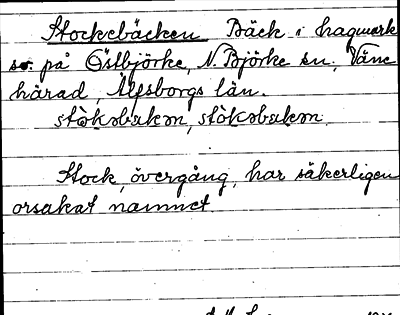 Stockebäcken Bäck i hagmark
so. på Östbjörke, N. Björke sn, Väne
härad, Älfsborgs län.
stòkəbakən, stòkəbakən.
Stock, övergång, har säkerligen
orsakat namnet.